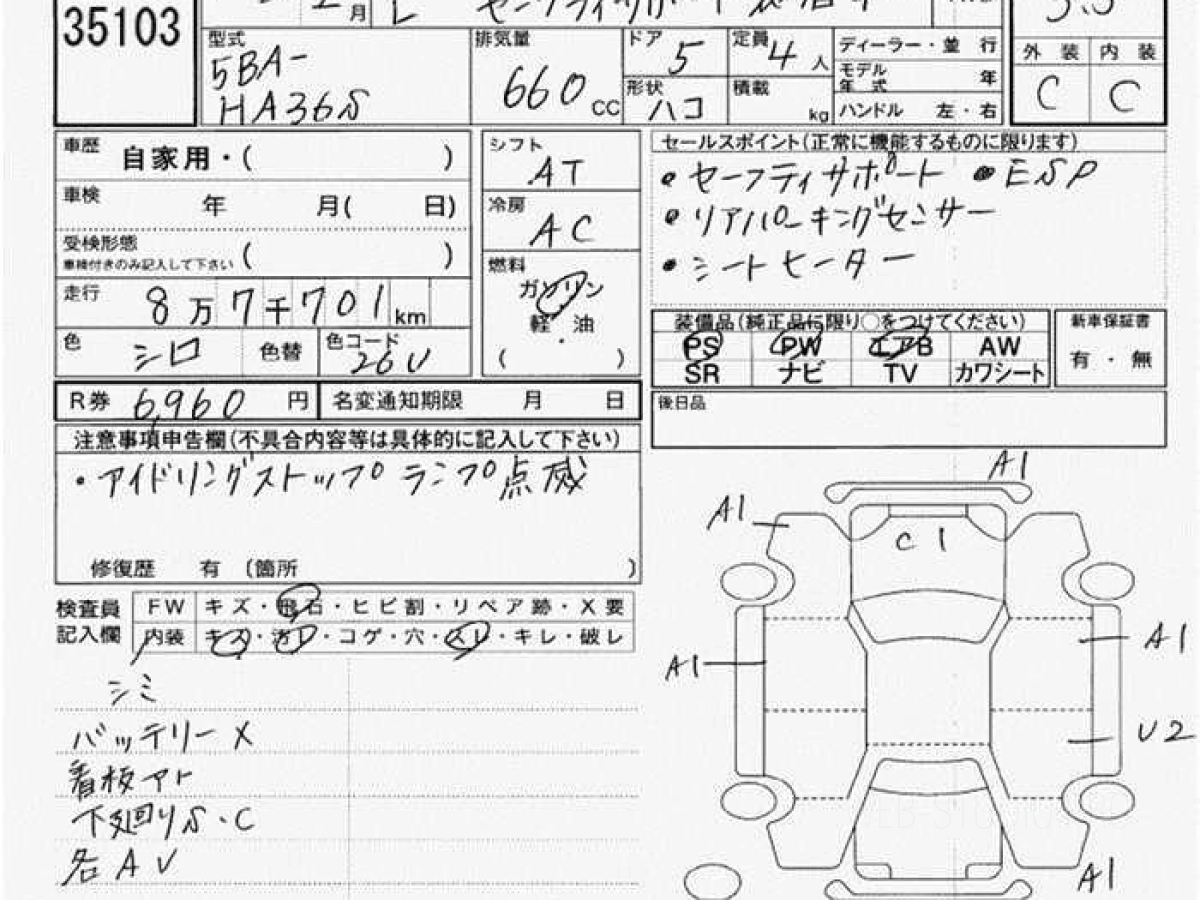 35103
月 L セーフティサポート装着車
3.5
型式 5BA-HA36S
排気量 660 CC
ドア 5
定員 4 人
形状 ハコ
積載 kg
ディーラー・並 行
モデル年式 年
ハンドル 左・右
外装 内装
C C
車歴 自家用・( )
車検 年 月( 日)
受検形態 ( )
車検付きのみ記入して下さい
走行 8万7千701km
色 シロ 色替 色コード 26U
シフト AT
冷房 AC
燃料 ガソリン
軽・油
( )
セールスポイント(正常に機能するものに限ります)
・セーフティサポート ・ESP
・リアパーキングセンサー
・シートヒーター
装備品(純正品に限り○をつけてください)
PS PW エアB AW
SR ナビ TV カワシート
新車保証書
有・無
R券 6,960 円 名変通知期限 月 日
後日品
注意事項申告欄(不具合内容等は具体的に記入して下さい)
・アイドリングストップランプ点威
修復歴 有 (箇所 )
検査員記入欄
FW キズ・飛石・ヒビ割・リペア跡・X要
内装 キズ・汚レ・コゲ・穴・スレ・キレ・破レ
シミ
バッテリーX
看板アト
下廻りS・C
各AU
A1
A1
C1
A1
A1
U2
A1